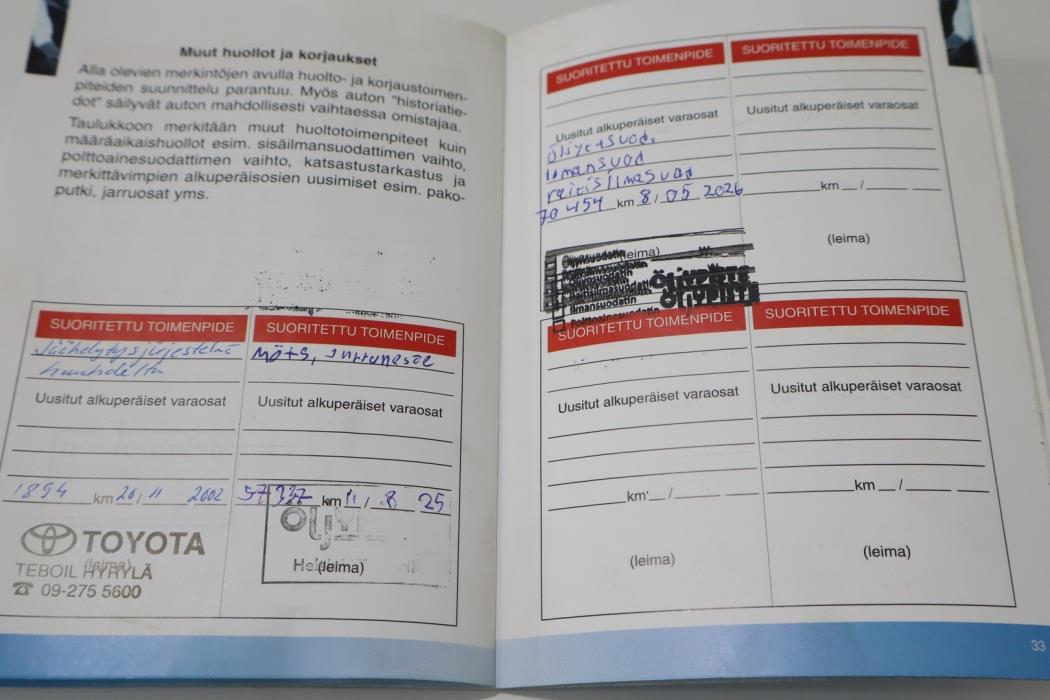 Muut huollot ja korjaukset
Alla olevien merkintöjen avulla huolto- ja korjaustoimen-
piteiden suunnittelu parantuu. Myös auton "historiatie-
dot" säilyvät auton mahdollisesti vaihtaessa omistajaa.
Taulukkoon merkitään muut huoltotoimenpiteet kuin
määräaikaishuollot esim. sisäilmansuodattimen vaihto,
polttoainesuodattimen vaihto, katsastustarkastus ja
merkittävimpien alkuperäisosien uusimiset esim. pako-
putki, jarruosat yms.
SUORITETTU TOIMENPIDE
Jäähdytysjärjestelmä
huuhdeltu
Uusitut alkuperäiset varaosat
1894 km 26 / 11 2002
TOYOTA
(leima)
TEBOIL HYRYLÄ
☎ 09-275 5600
SUORITETTU TOIMENPIDE
Uusitut alkuperäiset varaosat
57937 km 11 / 8 25
(leima)
SUORITETTU TOIMENPIDE
Uusitut alkuperäiset varaosat
öljyt+suod.
ilmansuod
raitisilmasuod
70 454 km 8 / 05 2026
(leima)
Öljynsuodatin
Ilmansuodatin
Polttoainesuodatin
SUORITETTU TOIMENPIDE
Uusitut alkuperäiset varaosat
km /
(leima)
SUORITETTU TOIMENPIDE
Uusitut alkuperäiset varaosat
km /
(leima)
SUORITETTU TOIMENPIDE
Uusitut alkuperäiset varaosat
km /
(leima)
33